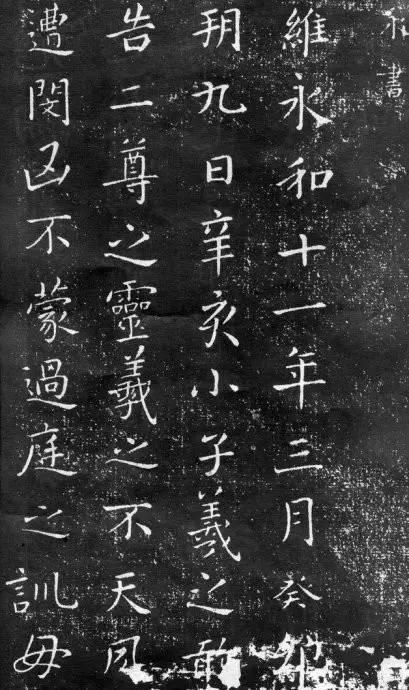 書
維永和十一年三月癸卯
朔九日辛亥小子羲之敢
告二尊之靈羲之不天夙
遭閔凶不蒙過庭之訓母